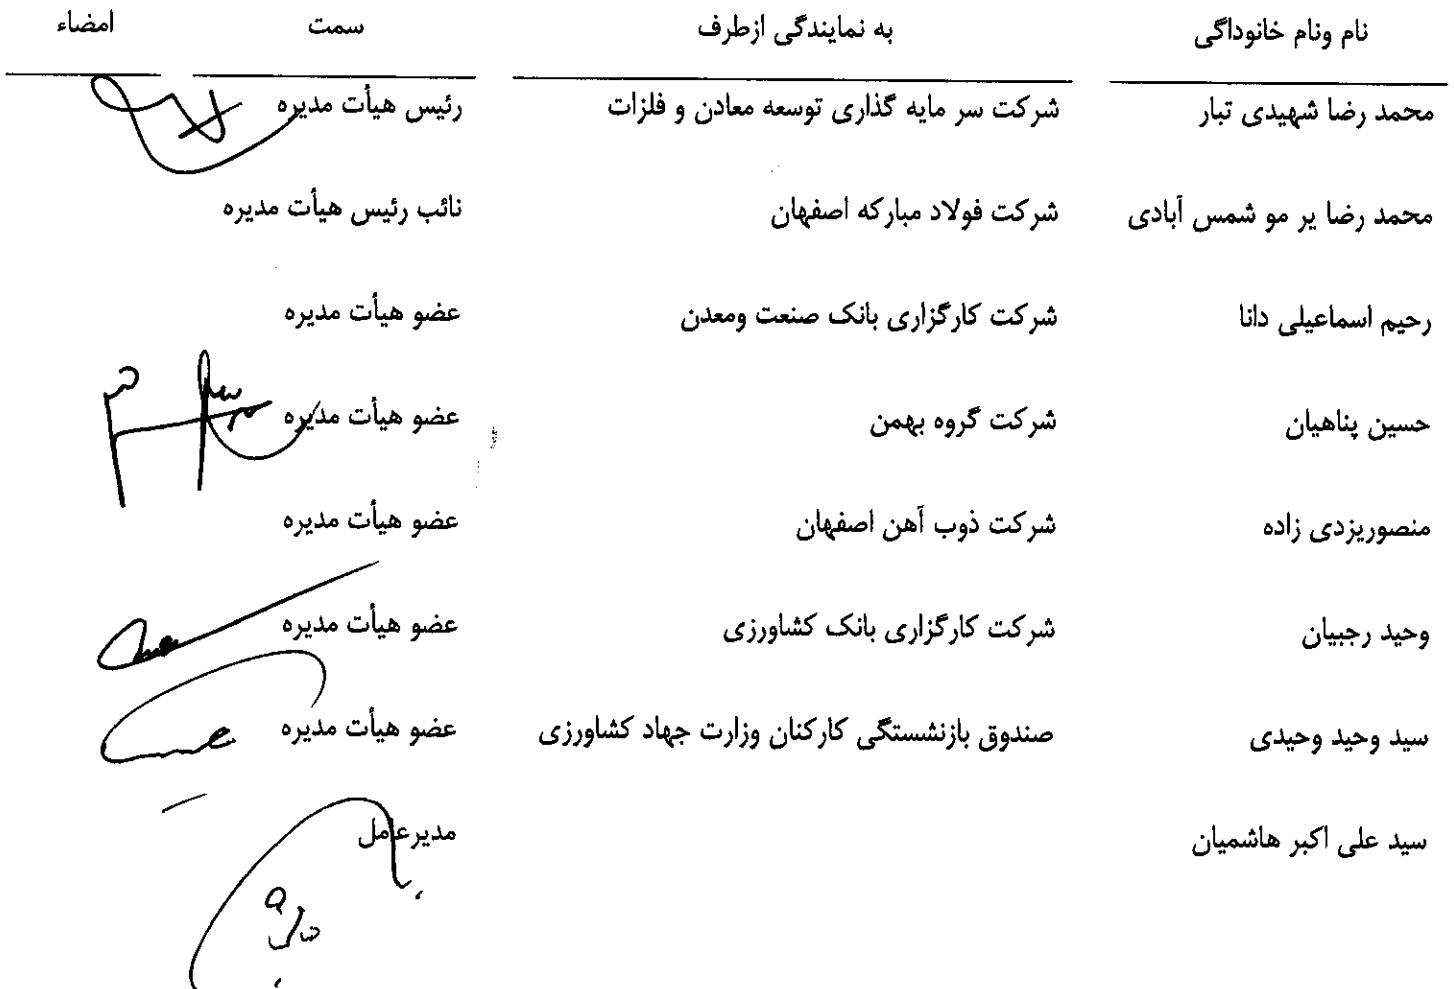 نام ونام خانوداگی به نمایندگی ازطرف سمت امضاء
محمد رضا شهیدی تبار شرکت سر مایه گذاری توسعه معادن و فلزات رئیس هیأت مدیره
محمد رضا یر مو شمس آبادی شرکت فولاد مبارکه اصفهان نائب رئیس هیأت مدیره
رحیم اسماعیلی دانا شرکت کارگزاری بانک صنعت ومعدن عضو هیأت مدیره
حسین پناهیان شرکت گروه بهمن عضو هیأت مدیره
منصوریزدی زاده شرکت ذوب آهن اصفهان عضو هیأت مدیره
وحید رجبیان شرکت کارگزاری بانک کشاورزی عضو هیأت مدیره
سید وحید وحیدی صندوق بازنشستگی کارکنان وزارت جهاد کشاورزی عضو هیأت مدیره
سید علی اکبر هاشمیان مدیرعامل